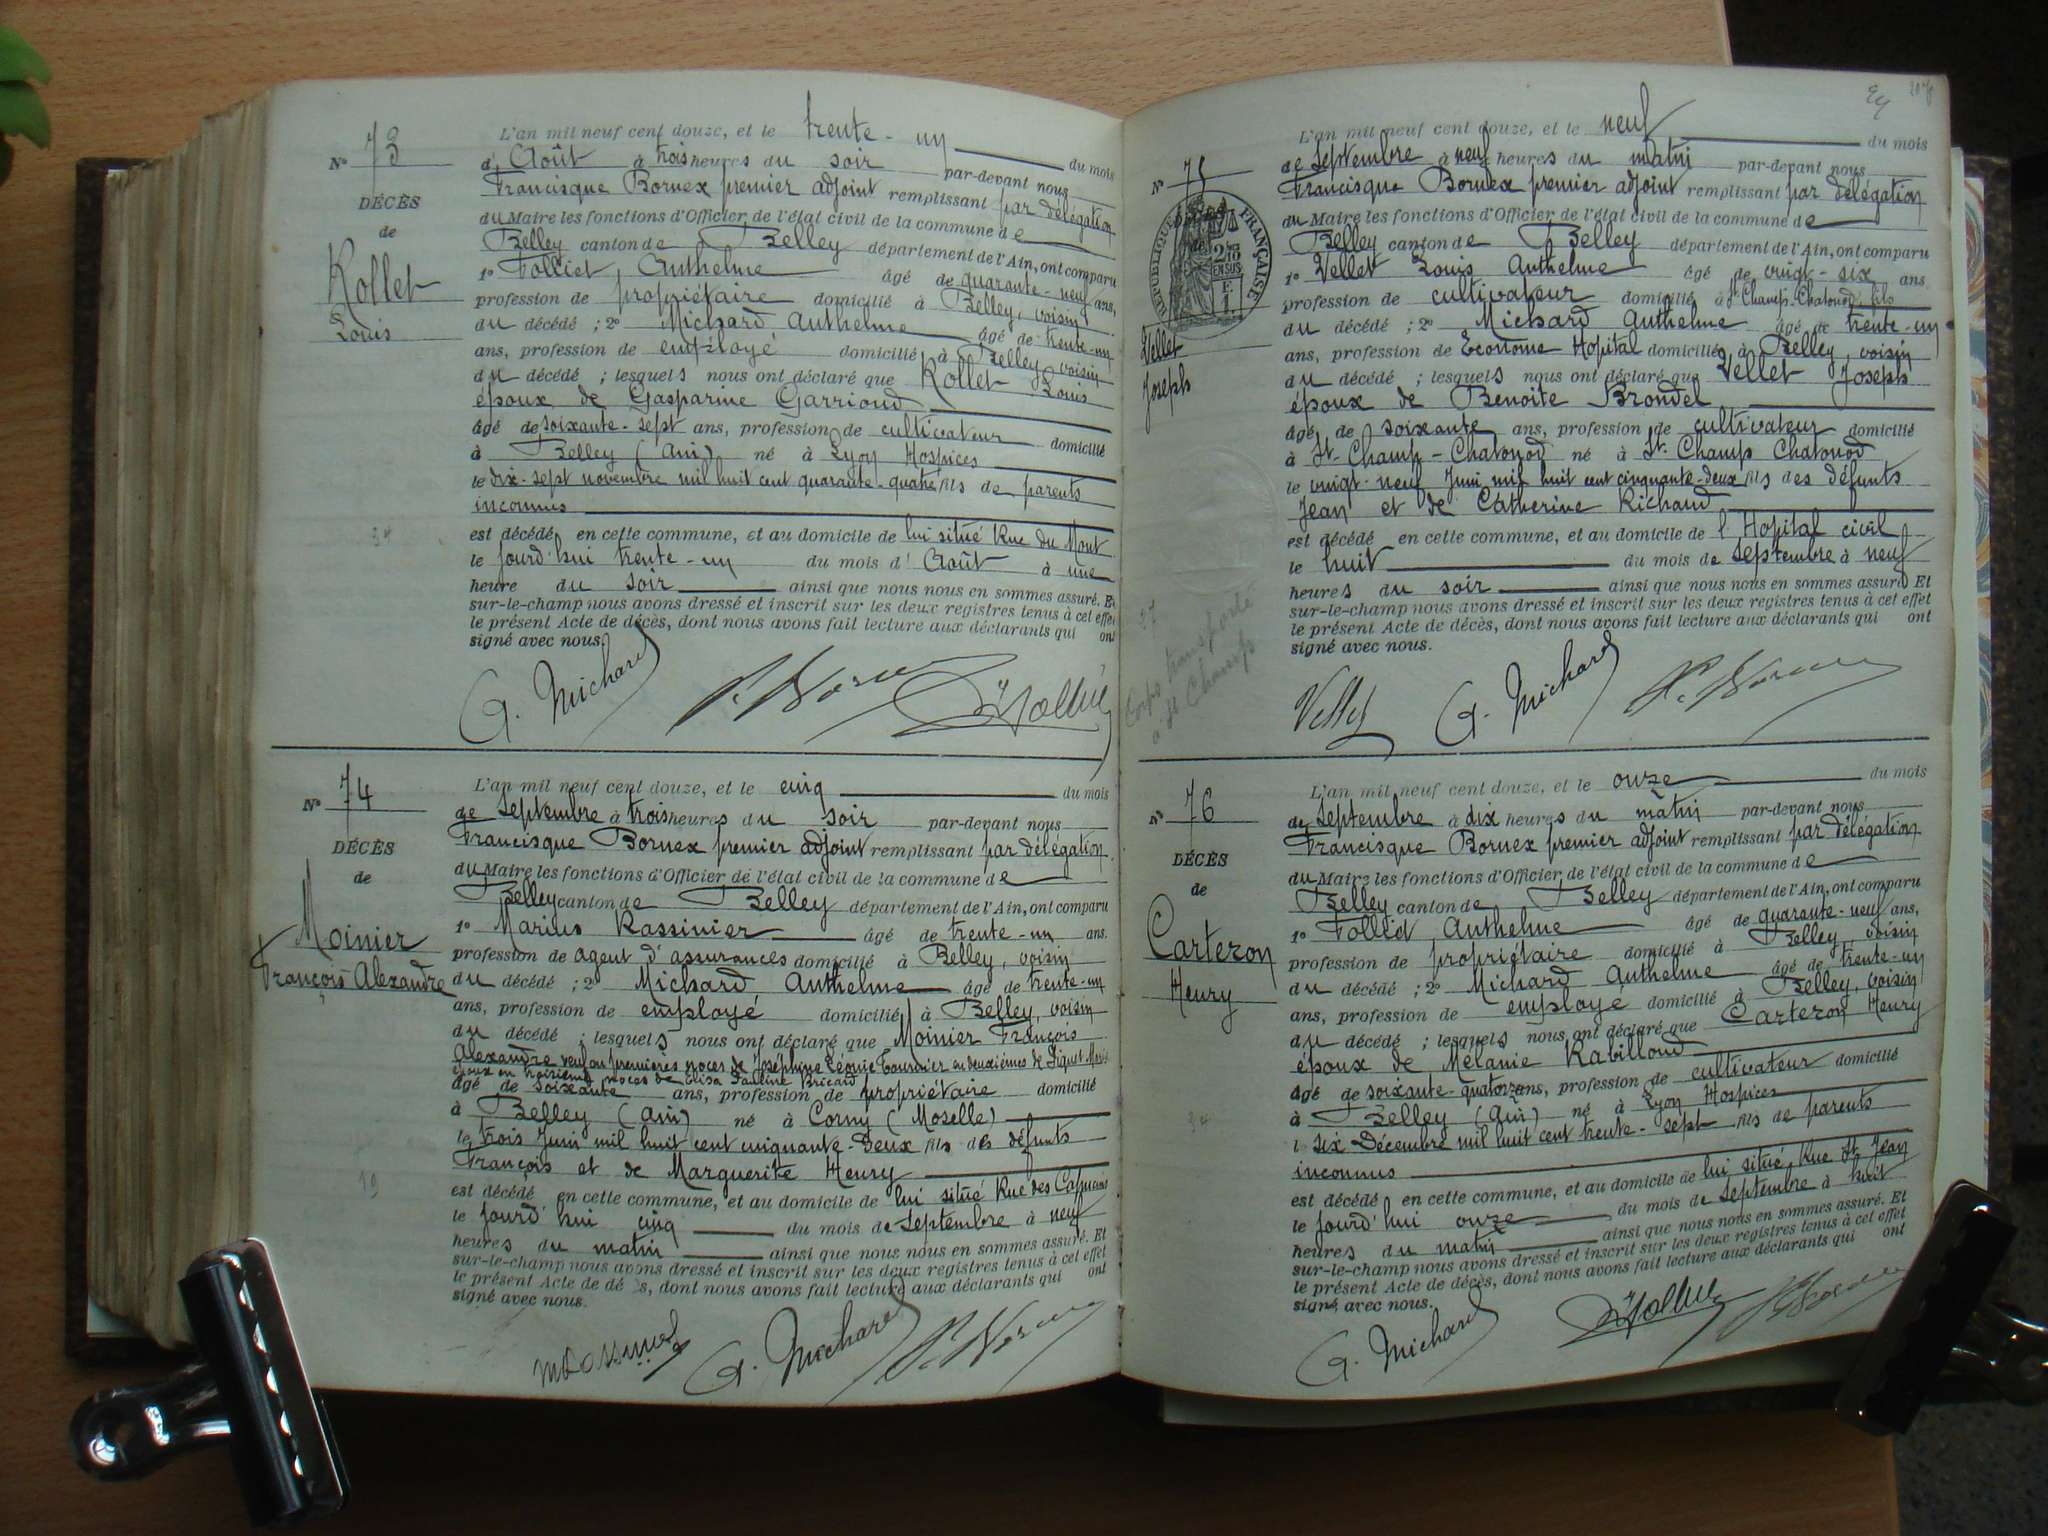 N° 73
DÉCÈS
de
Rollet
Louis
L'an mil neuf cent douze, et le trente-un du mois
d'Août à trois heures du soir par-devant nous
Francisque Bornex premier adjoint remplissant par délégation
du Maire les fonctions d'Officier de l'état civil de la commune de
Belley canton de Belley département de l'Ain, ont comparu
1° Folliet Anthelme âgé de quarante-neuf ans,
profession de propriétaire domicilié à Belley, voisin
du décédé ; 2° Michard Anthelme âgé de trente-un
ans, profession de employé domicilié à Belley, voisin
du décédé ; lesquels nous ont déclaré que Rollet Louis
époux de Gasparine Garrioud
âgé de soixante-sept ans, profession de cultivateur domicilié
à Belley (Ain) né à Lyon Hospices
le dix-sept novembre mil huit cent quarante-quatre fils de parents
inconnus
est décédé en cette commune, et au domicile de lui situé Rue du Mont
le jourd'hui trente-un du mois d'Août à une
heure du soir ainsi que nous nous en sommes assuré. Et
sur-le-champ nous avons dressé et inscrit sur les deux registres tenus à cet effet
le présent Acte de décès, dont nous avons fait lecture aux déclarants qui ont
signé avec nous.
A. Michard F. Bornex Folliet
N° 74
DÉCÈS
de
Moinier
François Alexandre
19
L'an mil neuf cent douze, et le cinq du mois
de Septembre à trois heures du soir par-devant nous
Francisque Bornex premier adjoint remplissant par délégation
du Maire les fonctions d'Officier de l'état civil de la commune de
Belley canton de Belley département de l'Ain, ont comparu
1° Marius Rassinier âgé de trente-un ans.
profession de agent d'assurances domicilié à Belley, voisin
du décédé ; 2° Michard Anthelme âgé de trente-un
ans, profession de employé domicilié à Belley, voisin
du décédé ; lesquels nous ont déclaré que Moinier François
Alexandre veuf en premières noces de Joséphine Léonie Tournier en deuxièmes de Piguet Marie
époux en troisièmes noces de Elisa Pauline Bricard
âgé de soixante ans, profession de propriétaire domicilié
à Belley (Ain) né à Corny (Moselle)
le trois Juin mil huit cent cinquante-deux fils des défunts
François et de Marguerite Henry
est décédé en cette commune, et au domicile de lui situé Rue des Capucins
le jourd'hui cinq du mois de Septembre à neuf
heures du matin ainsi que nous nous en sommes assuré. Et
sur-le-champ nous avons dressé et inscrit sur les deux registres tenus à cet effet
le présent Acte de décès, dont nous avons fait lecture aux déclarants qui ont
signé avec nous.
MRassinier A. Michard F. Bornex
N° 75
RÉPUBLIQUE FRANÇAISE
2/10 EN SUS
Vellet
Joseph
27
Corps transporté
à St Champ
L'an mil neuf cent douze, et le neuf du mois
de Septembre à neuf heures du matin par-devant nous
Francisque Bornex premier adjoint remplissant par délégation
du Maire les fonctions d'Officier de l'état civil de la commune de
Belley canton de Belley département de l'Ain, ont comparu
1° Vellet Louis Anthelme âgé de vingt-six ans
profession de cultivateur domicilié à St Champ-Chatonod, fils
du décédé ; 2° Michard Anthelme âgé de trente-un
ans, profession de Econome Hopital domicilié à Belley, voisin
du décédé ; lesquels nous ont déclaré que Vellet Joseph
époux de Benoite Brondel
âgé de soixante ans, profession de cultivateur domicilié
à St-Champ-Chatonod né à St. Champ Chatonod
le vingt-neuf Juin mil huit cent cinquante-deux fils des défunts
Jean et de Catherine Richard
est décédé en cette commune, et au domicile de l'Hopital civil
le huit du mois de septembre à neuf
heures du soir ainsi que nous nous en sommes assuré Et
sur-le-champ nous avons dressé et inscrit sur les deux registres tenus à cet effet
le présent Acte de décès, dont nous avons fait lecture aux déclarants qui ont
signé avec nous.
Vellet A. Michard F. Bornex
N° 76
DÉCÈS
de
Carteron
Henry
L'an mil neuf cent douze, et le onze du mois
de Septembre à dix heures du matin par-devant nous
Francisque Bornex premier adjoint remplissant par délégation
du Maire les fonctions d'Officier de l'état civil de la commune de
Belley canton de Belley département de l'Ain, ont comparu
1° Folliet Anthelme âgé de quarante-neuf ans,
profession de propriétaire domicilié à Belley, voisin
du décédé ; 2° Michard Anthelme âgé de trente-un
ans, profession de employé domicilié à Belley, voisin
du décédé ; lesquels nous ont déclaré que Carteron Henry
époux de Mélanie Rabilloud
âgé de soixante-quatorze ans, profession de cultivateur domicilié
à Belley (Ain) né à Lyon Hospices
le six Décembre mil huit cent trente-sept fils de parents
inconnus
est décédé en cette commune, et au domicile de lui situé Rue St Jean
le jourd'hui onze du mois de Septembre à huit
heures du matin ainsi que nous nous en sommes assuré. Et
sur-le-champ nous avons dressé et inscrit sur les deux registres tenus à cet effet
le présent Acte de décès, dont nous avons fait lecture aux déclarants qui ont
signé avec nous.
A. Michard Folliet F. Bornex